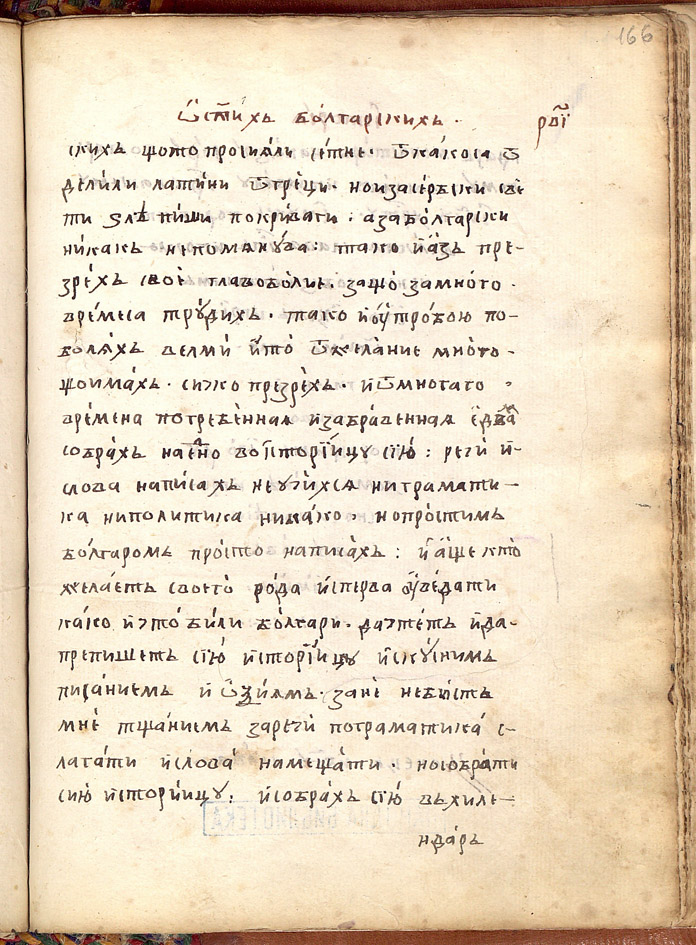 166
Ѿ ст҃ихъ болгарскихъ ·
скихъ що то просияли сетне · ѿ како са ѿ
делили латини ѿ греци · но и за сербски све
ти злѣ пиши покривати · а за болгарски
никакъ не поманува : тако и азъ пре-
зрехъ свое главоболие · защо за много ·
времеса трудихъ · тако и утробою по-
болѧхъ велми и то ѿ желание много ·
що имахъ · сичко презрехъ · и ѿ многаго
времена потребеннаѧ и забравеннаѧ едва
собрахъ на ено во историицу сию : речи и-
слова написахъ не учихсѧ ни грамати-
ка ни политика никако · но простимъ
болгаромъ просто написахъ : и аще кто
желаетъ своего рода исперва уведати
како и что били болгари · да чтетъ и да-
препишетъ сию историицу искуснимъ
писаниемъ и ѿ зиѧмъ · зане не бистъ
мне тщаниемъ за речи по граматика с-
лагати и слова намещати · но собрати
сию историицу : и собрахъ сию въ хиле-
ндаръ